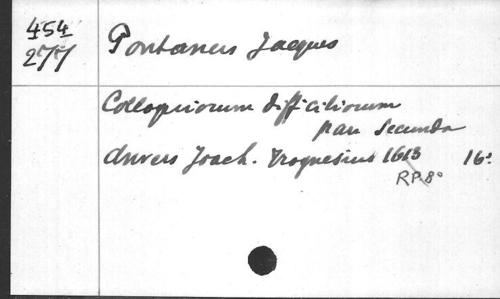 454
277
Pontanus Jacques
Colloquiorum difficiliorum
pars Secunda
Anvers Joach. Trognesius 1613 16º
RP 8º